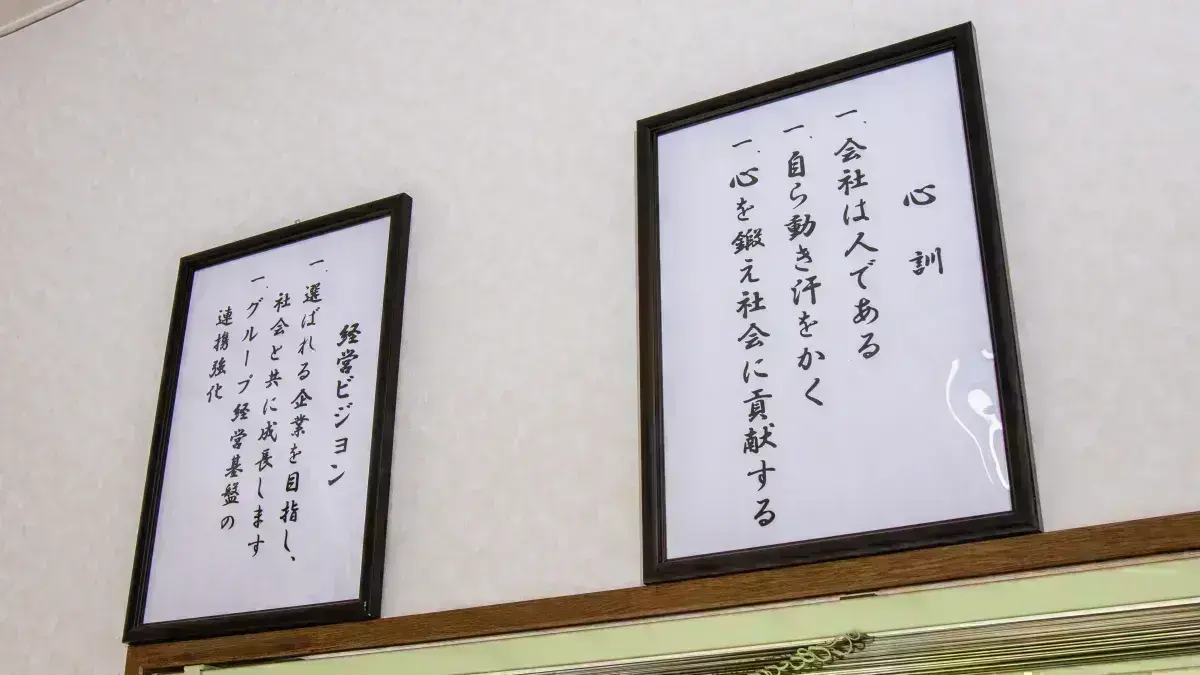 心訓
一.会社は人である
一.自ら動き汗をかく
一.心を鍛え社会に貢献する
経営ビジョン
一.選ばれる企業を目指し、
社会と共に成長します
一.グループ経営基盤の
連携強化